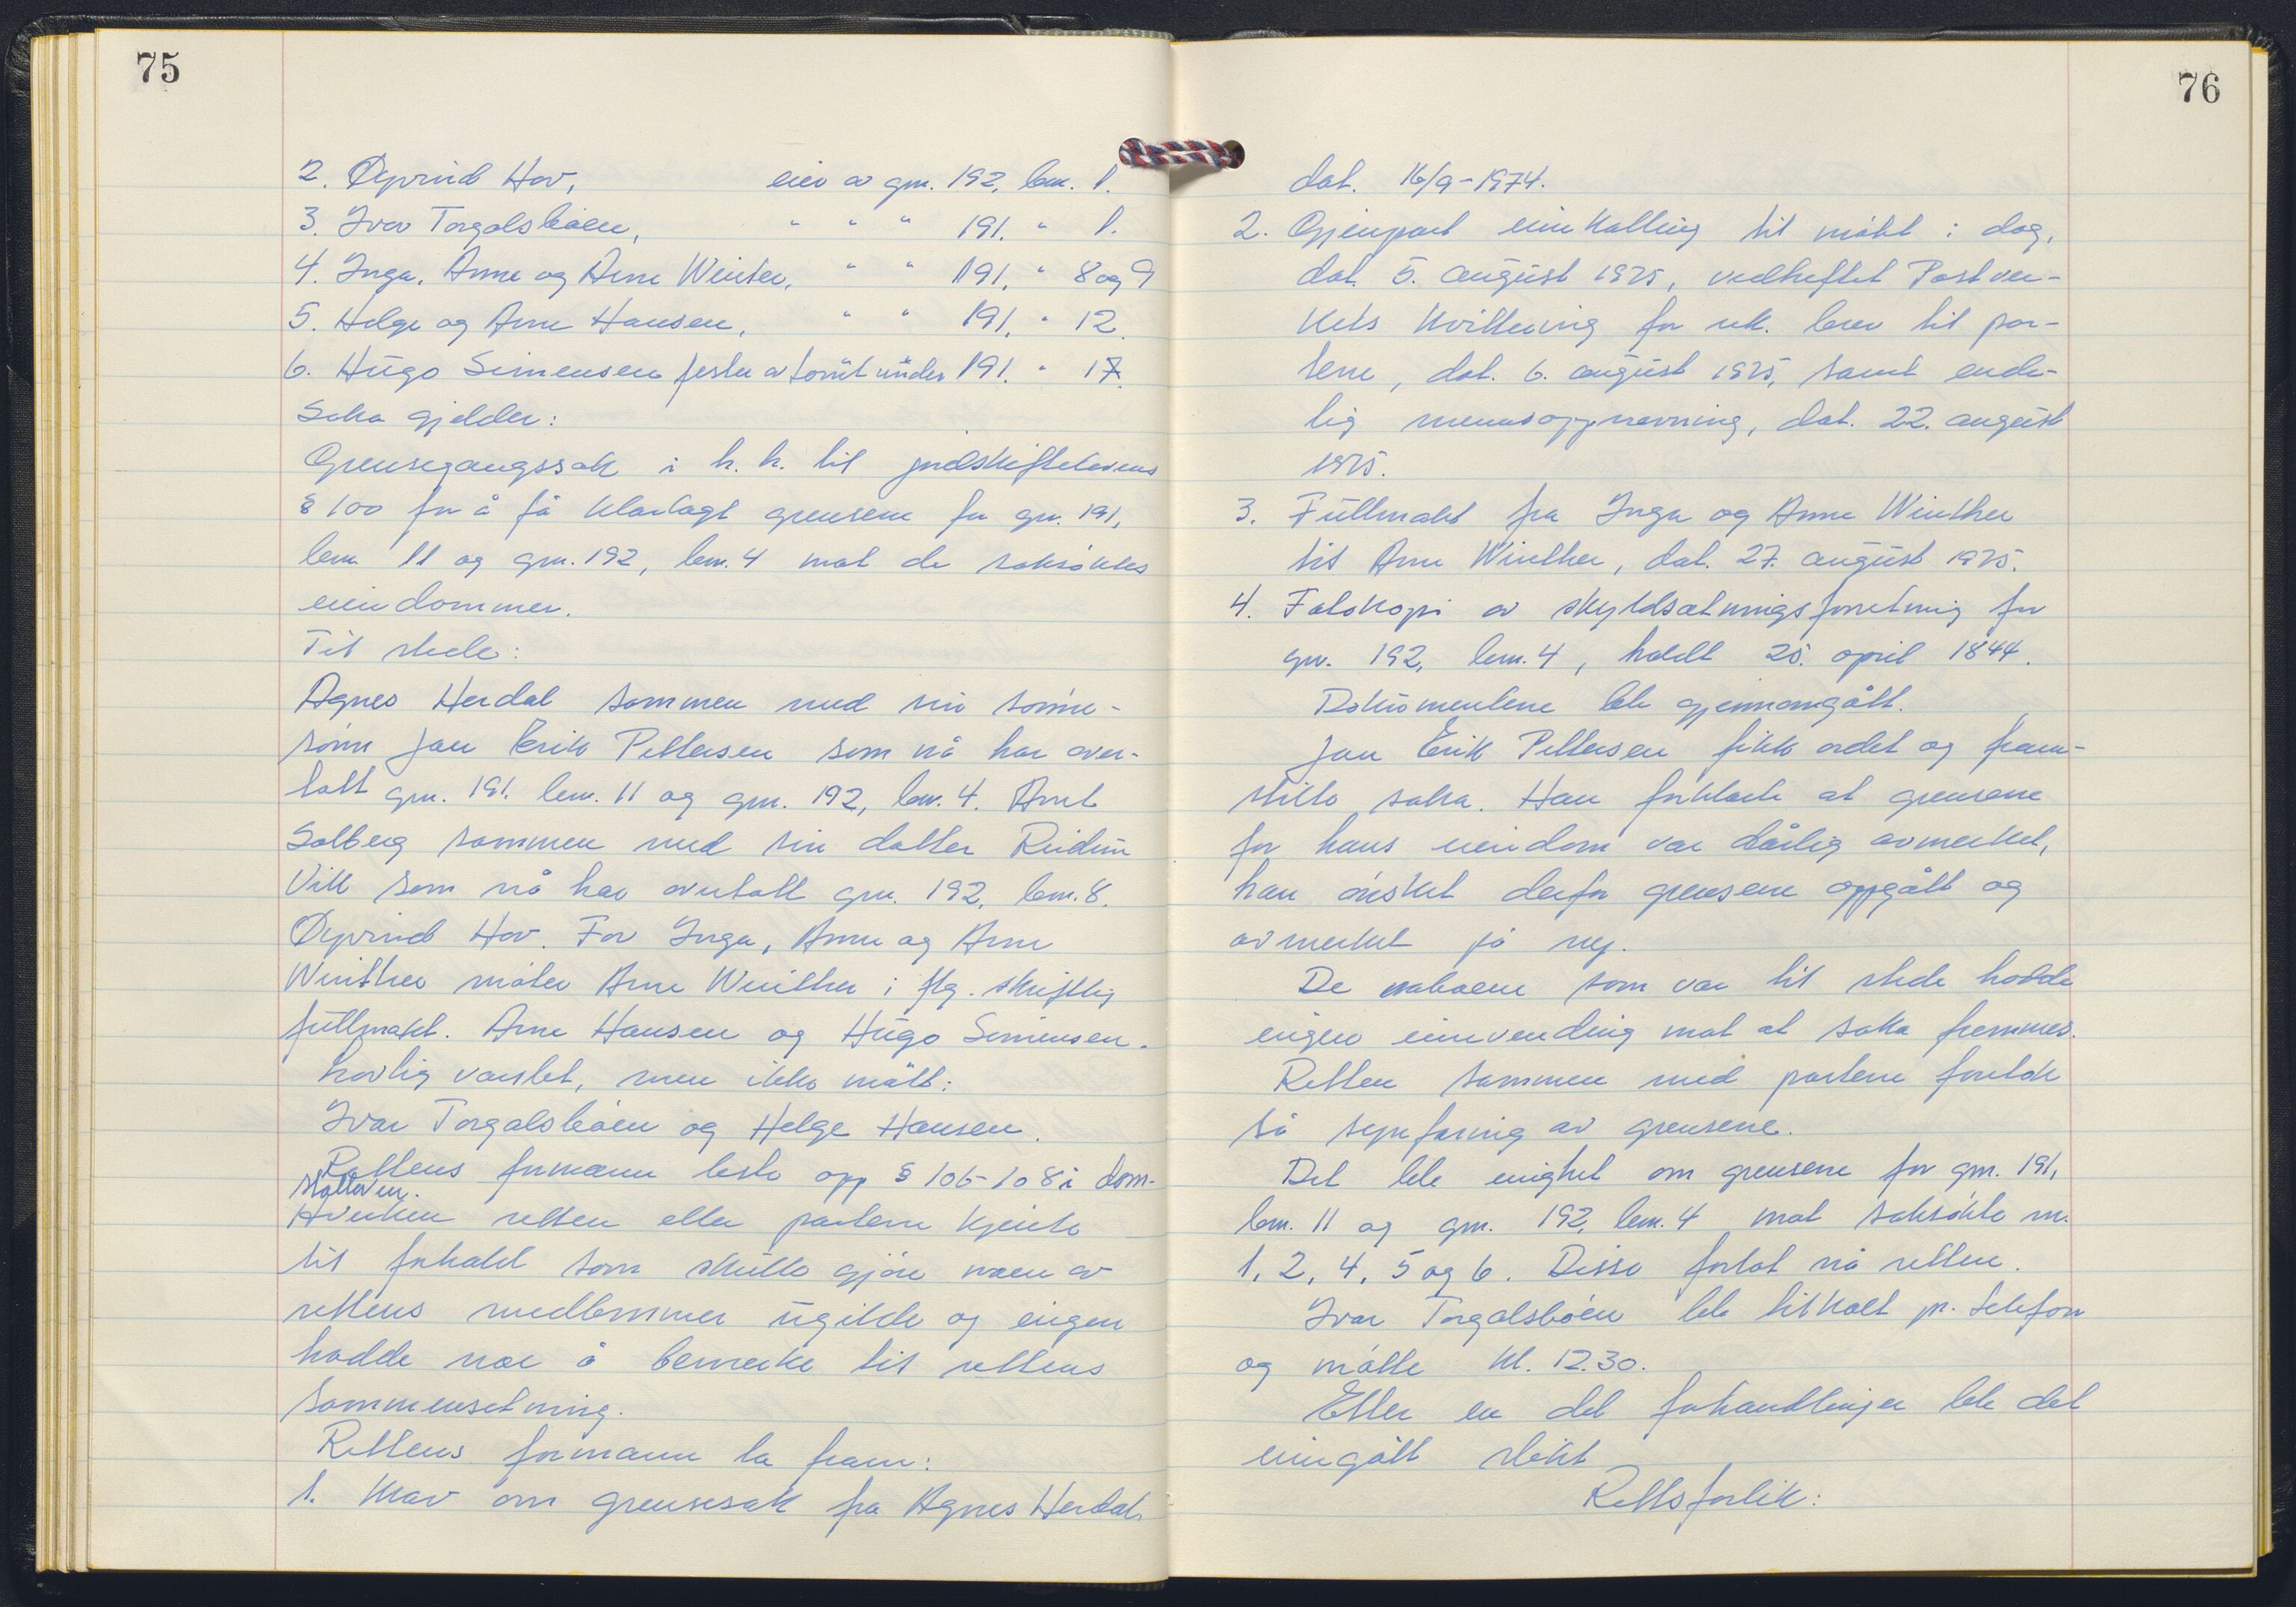 75
2. Øyvind Hov, eier av gnr. 192, bnr. 1.
3. Ivar Torgalsbøen, " " " 191. " 1.
4. Inga, Anne og Arne Winter, " " 191, " 8 og 9
5. Helge og Arne Hansen, " " 191, " 12.
6. Hugo Simensen fester av tomt under 191. " 17.
Saka gjelder:
Grensegangssak i h.h. til jordskiftelovens
§ 100 for å få klarlagt grensene for gnr. 191,
bnr. 11 og gnr. 192, bnr. 4 mot de saksøktes
eiendommer.
Til stede:
Agnes Herdal sammen med sin sønne-
sønn Jan Erik Pettersen som nå har over-
tatt gnr. 191. bnr. 11 og gnr. 192, bnr. 4. Arnt
Solberg sammen med sin datter Reidun
Vik som nå har overtatt gnr. 192, bnr. 8.
Øyvind Hov. For Inga, Anne og Arne
Winther møter Arne Winther i flg. skriftlig
fullmakt. Arne Hansen og Hugo Simensen.
Lovlig varslet, men ikke møtt:
Ivar Torgalsbøen og Helge Hansen.
Rettens formann leste opp § 106-108 i dom-
stolloven.
Hverken retten eller partene kjente
til forhold som skulle gjøre noen av
rettens medlemmer ugilde og ingen
hadde noe å bemerke til rettens
sammensetning.
Rettens formann la fram:
1. Krav om grensesak fra Agnes Herdal,
76
dat. 16/9-1974.
2. Gjenpart innkalling til møtet i dag,
dat. 5. august 1975, vedheftet Postver-
kets kvittering for rek. brev til par-
tene, dat. 6. august 1975, samt ende-
lig mennsoppnevning, dat. 22. august
1975.
3. Fullmakt fra Inga og Anne Winther
til Arne Winther, dat. 27. august 1975.
4. Fotokopi av skyldsetningsforretning for
gnr. 192, bnr. 4, holdt 25. april 1844.
Dokumentene ble gjennomgått.
Jan Erik Pettersen fikk ordet og fram-
stilte saka. Han forklarte at grensene
for hans eiendom var dårlig avmerket,
han ønsket derfor grensene oppgått og
avmerket på ny.
De naboene som var til stede hadde
ingen innvending mot at saka fremmes.
Retten sammen med partene foretok
så synfaring av grensene.
Det ble enighet om grensene for gnr. 191,
bnr. 11 og gnr. 192, bnr. 4 mot saksøkte nr.
1, 2, 4, 5 og 6. Disse forlot nå retten.
Ivar Torgalsbøen ble tilkalt pr. telefon
og møtte kl. 12.30.
Etter en del forhandlinger ble det
inngått slikt
Rettsforlik: